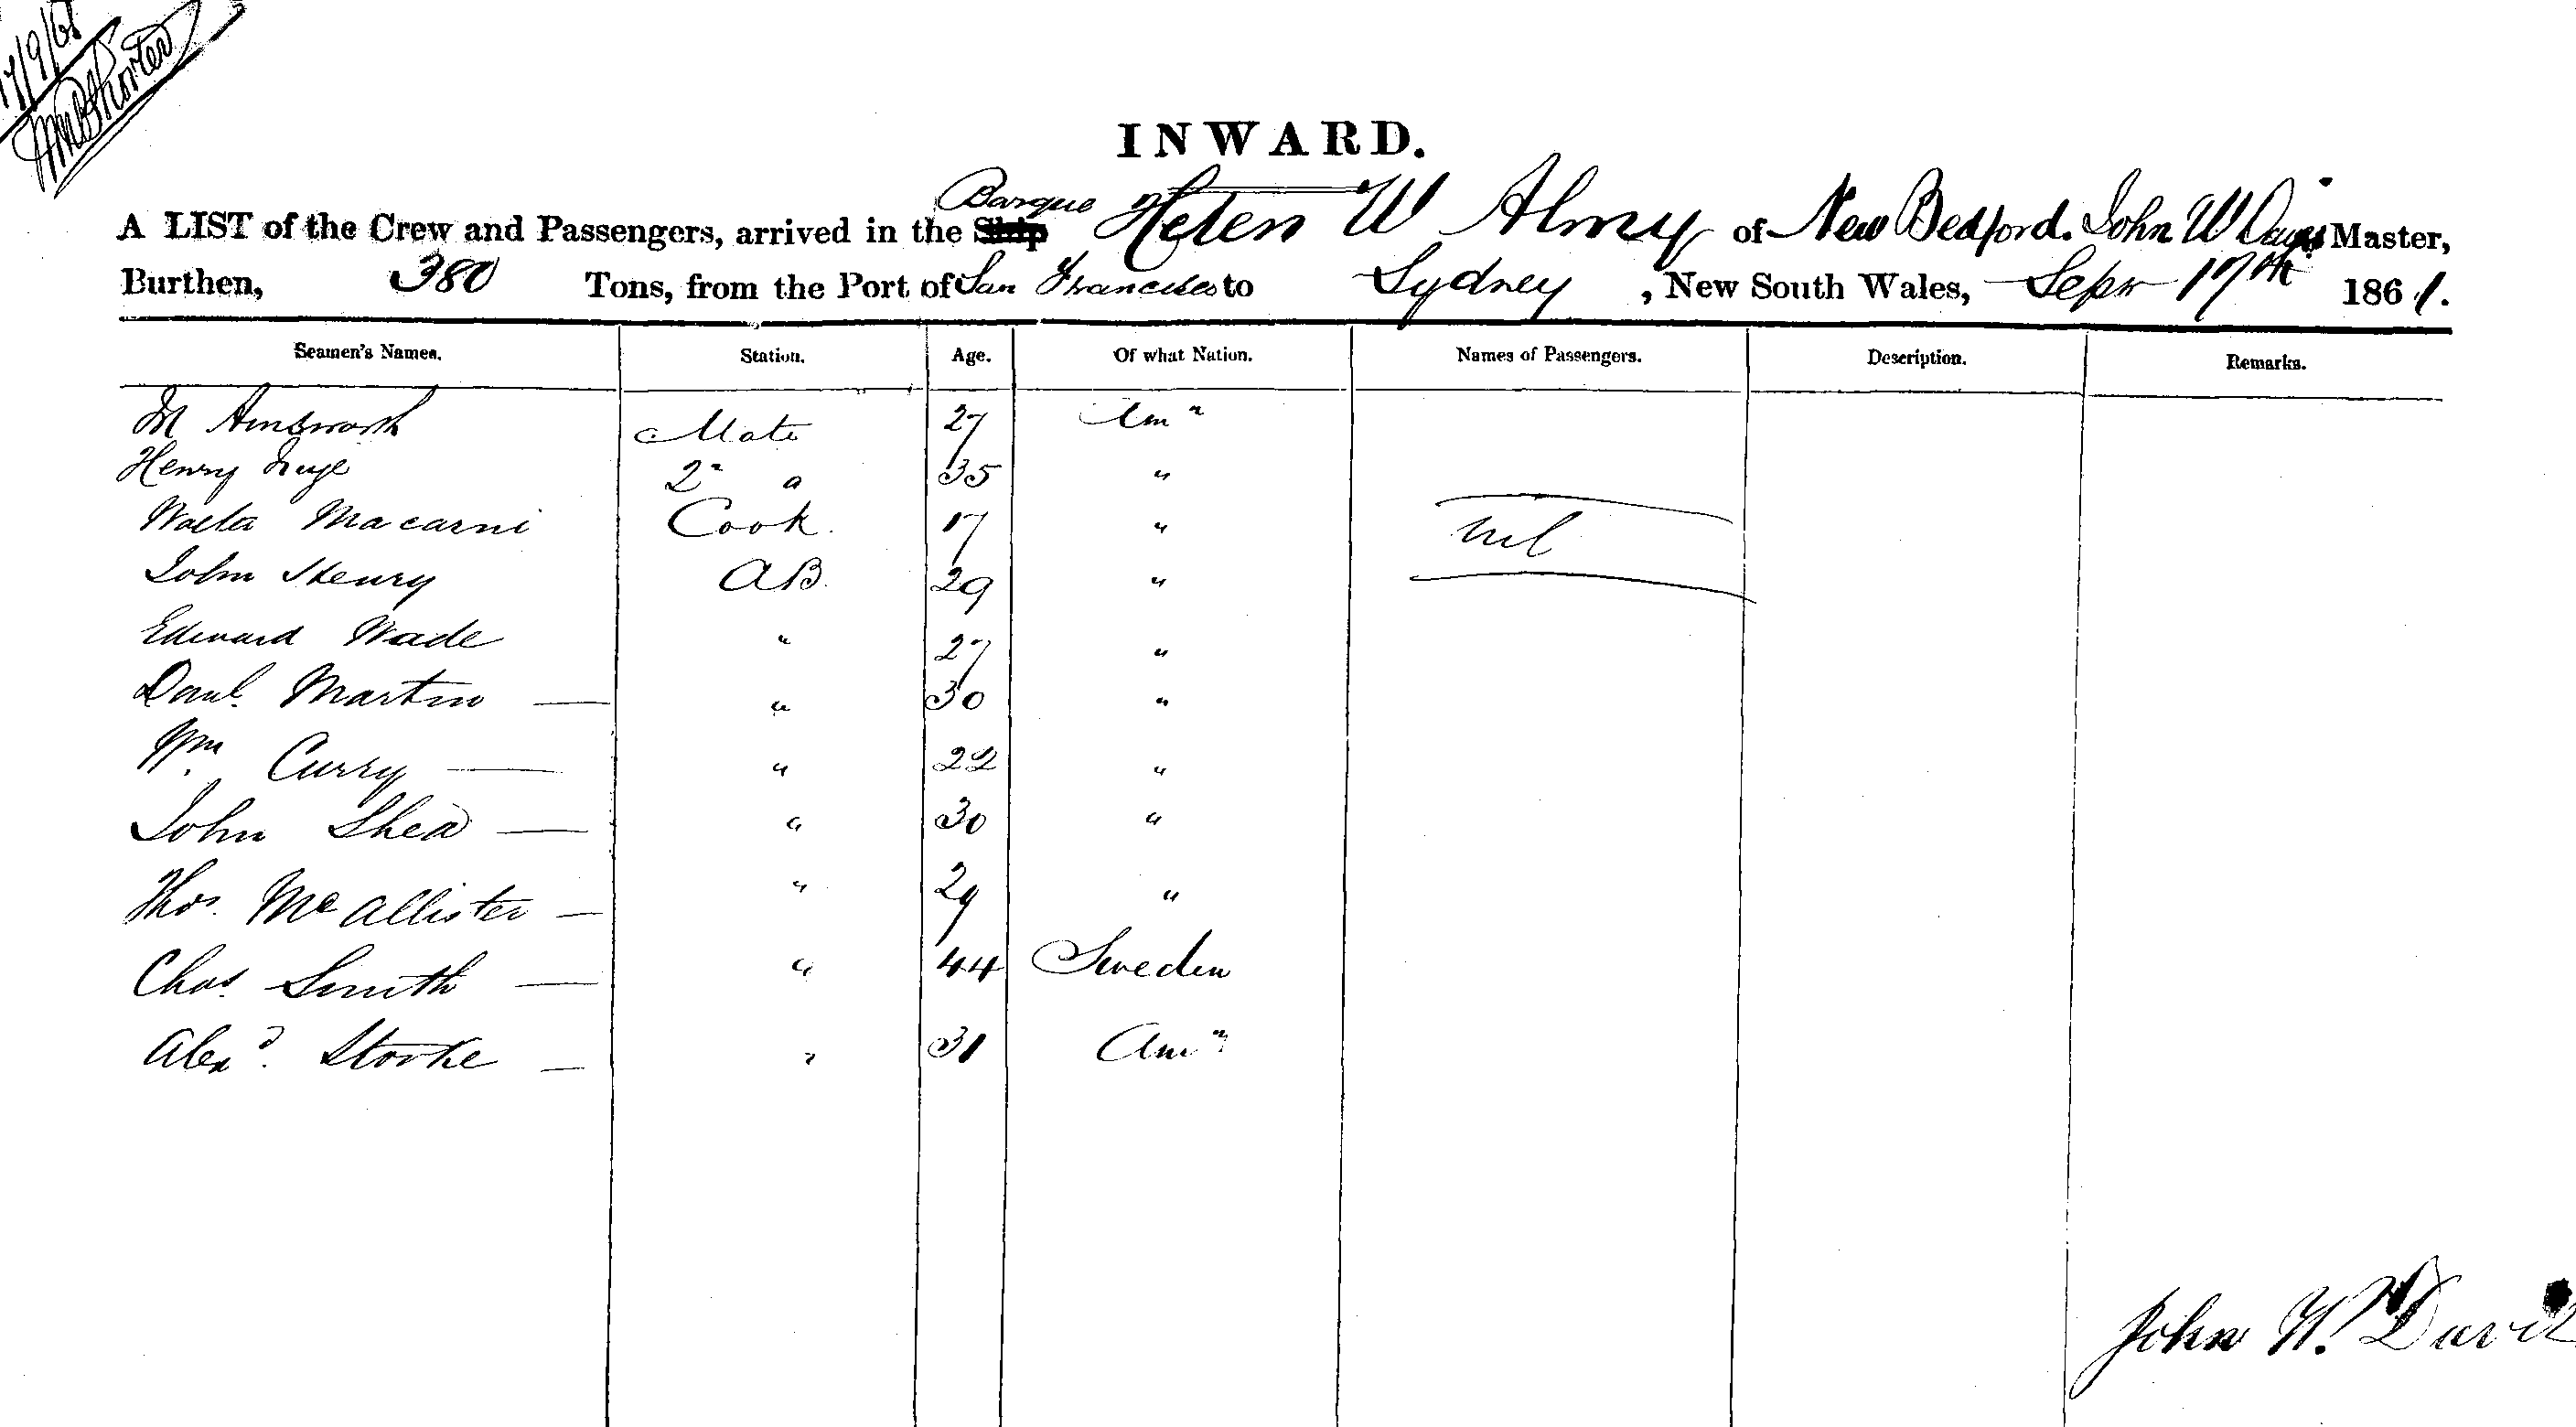 17/9/61
INWARD.
A LIST of the Crew and Passengers, arrived in the Ship Barque Helen W Almy of New Bedford. John W Davis Master,
Burthen, 380 Tons, from the Port of San Francisco to Sydney, New South Wales, Sepr 17th 1861.
Seamen's Names. Station. Age. Of what Nation. Names of Passengers. Description. Remarks.
M Ainsworth Mate 27 Amn
Henry 2n a 35 "
Walter Macarni Cook. 17 " nil
John Henry AB. 29 "
Edward Wade " 27 "
Danl. Martin — " 30 "
Wm Curry — " 22 "
John Shea — " 30 "
Thos. McAllister — " 29 "
Chas. Smith — " 44 Sweden
Alexd. Storke — " 31 Amn
John W. Davis